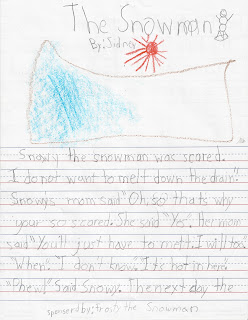 The Snowman
By: Sidney
Snowy the snowman was scared.
I do not want to melt down the drain."
Snowys mom said "Oh, so that's why
your so scared. She said "Yes". Her mom
said "You'll just have to melt. I will too."
"When". "I don't know." "It's not in here."
"Phew!" Said Snowy. The next day the
sponserd by: the Snowman